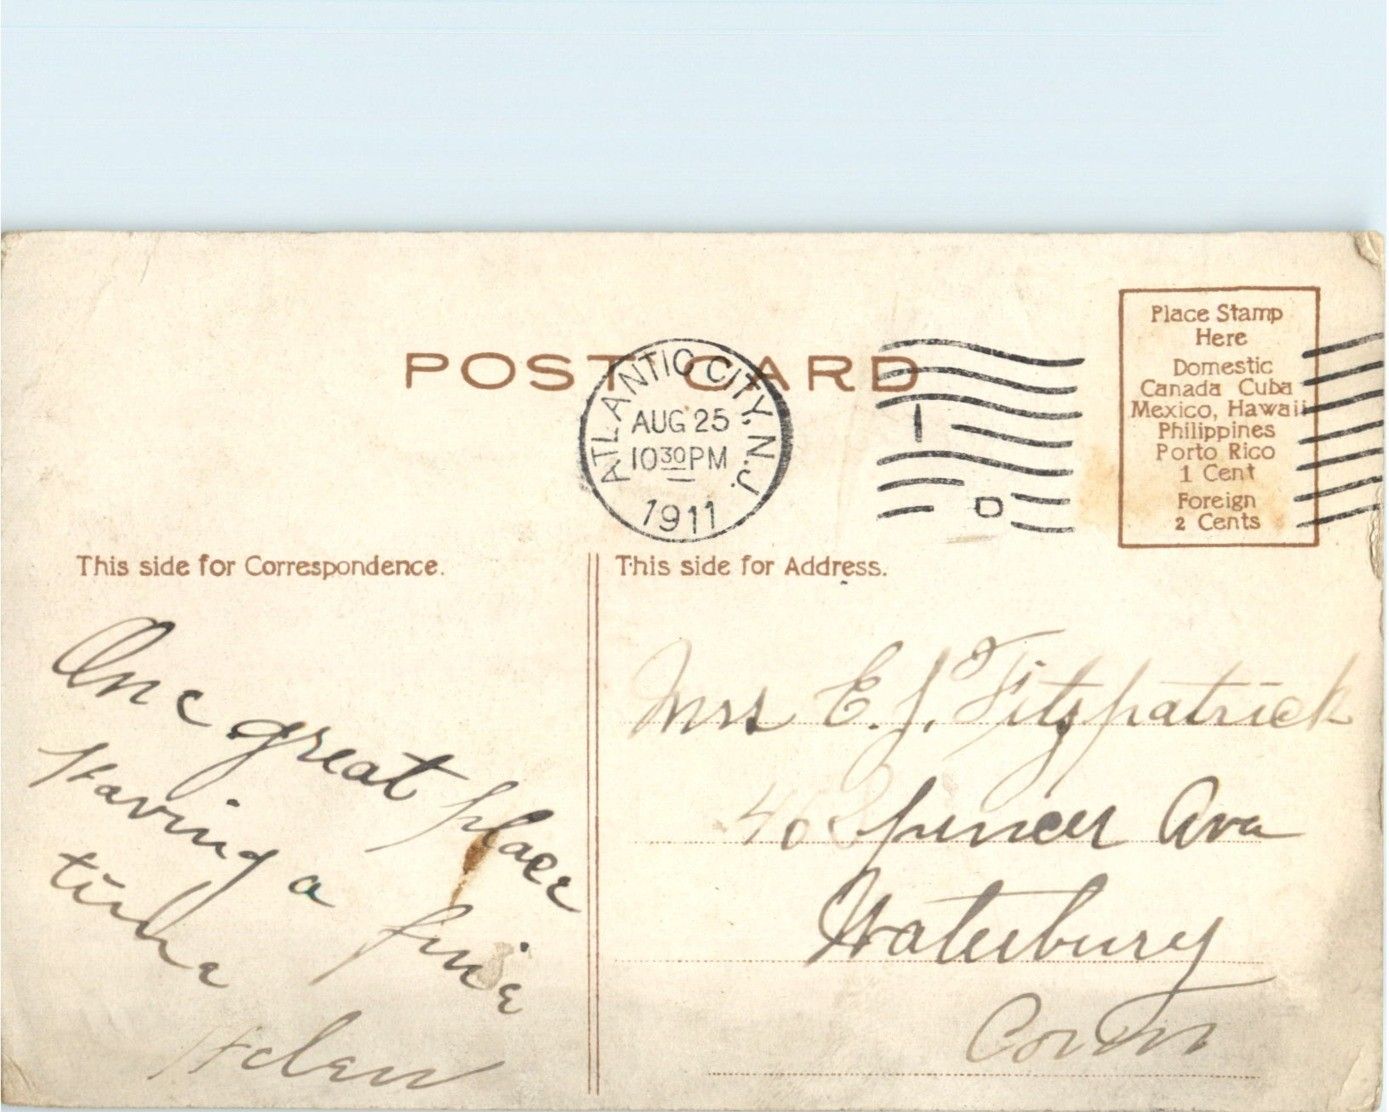 POST CARD
ATLANTIC CITY, N.J.
AUG 25
10 30 PM
1911
1
D
Place Stamp
Here
Domestic
Canada Cuba
Mexico, Hawaii
Philippines
Porto Rico
1 Cent
Foreign
2 Cents
This side for Correspondence.
One great place
Having a fine
time
Helen
This side for Address.
Mrs E. J. Fitzpatrick
Spencer Ave
Waterbury
Conn